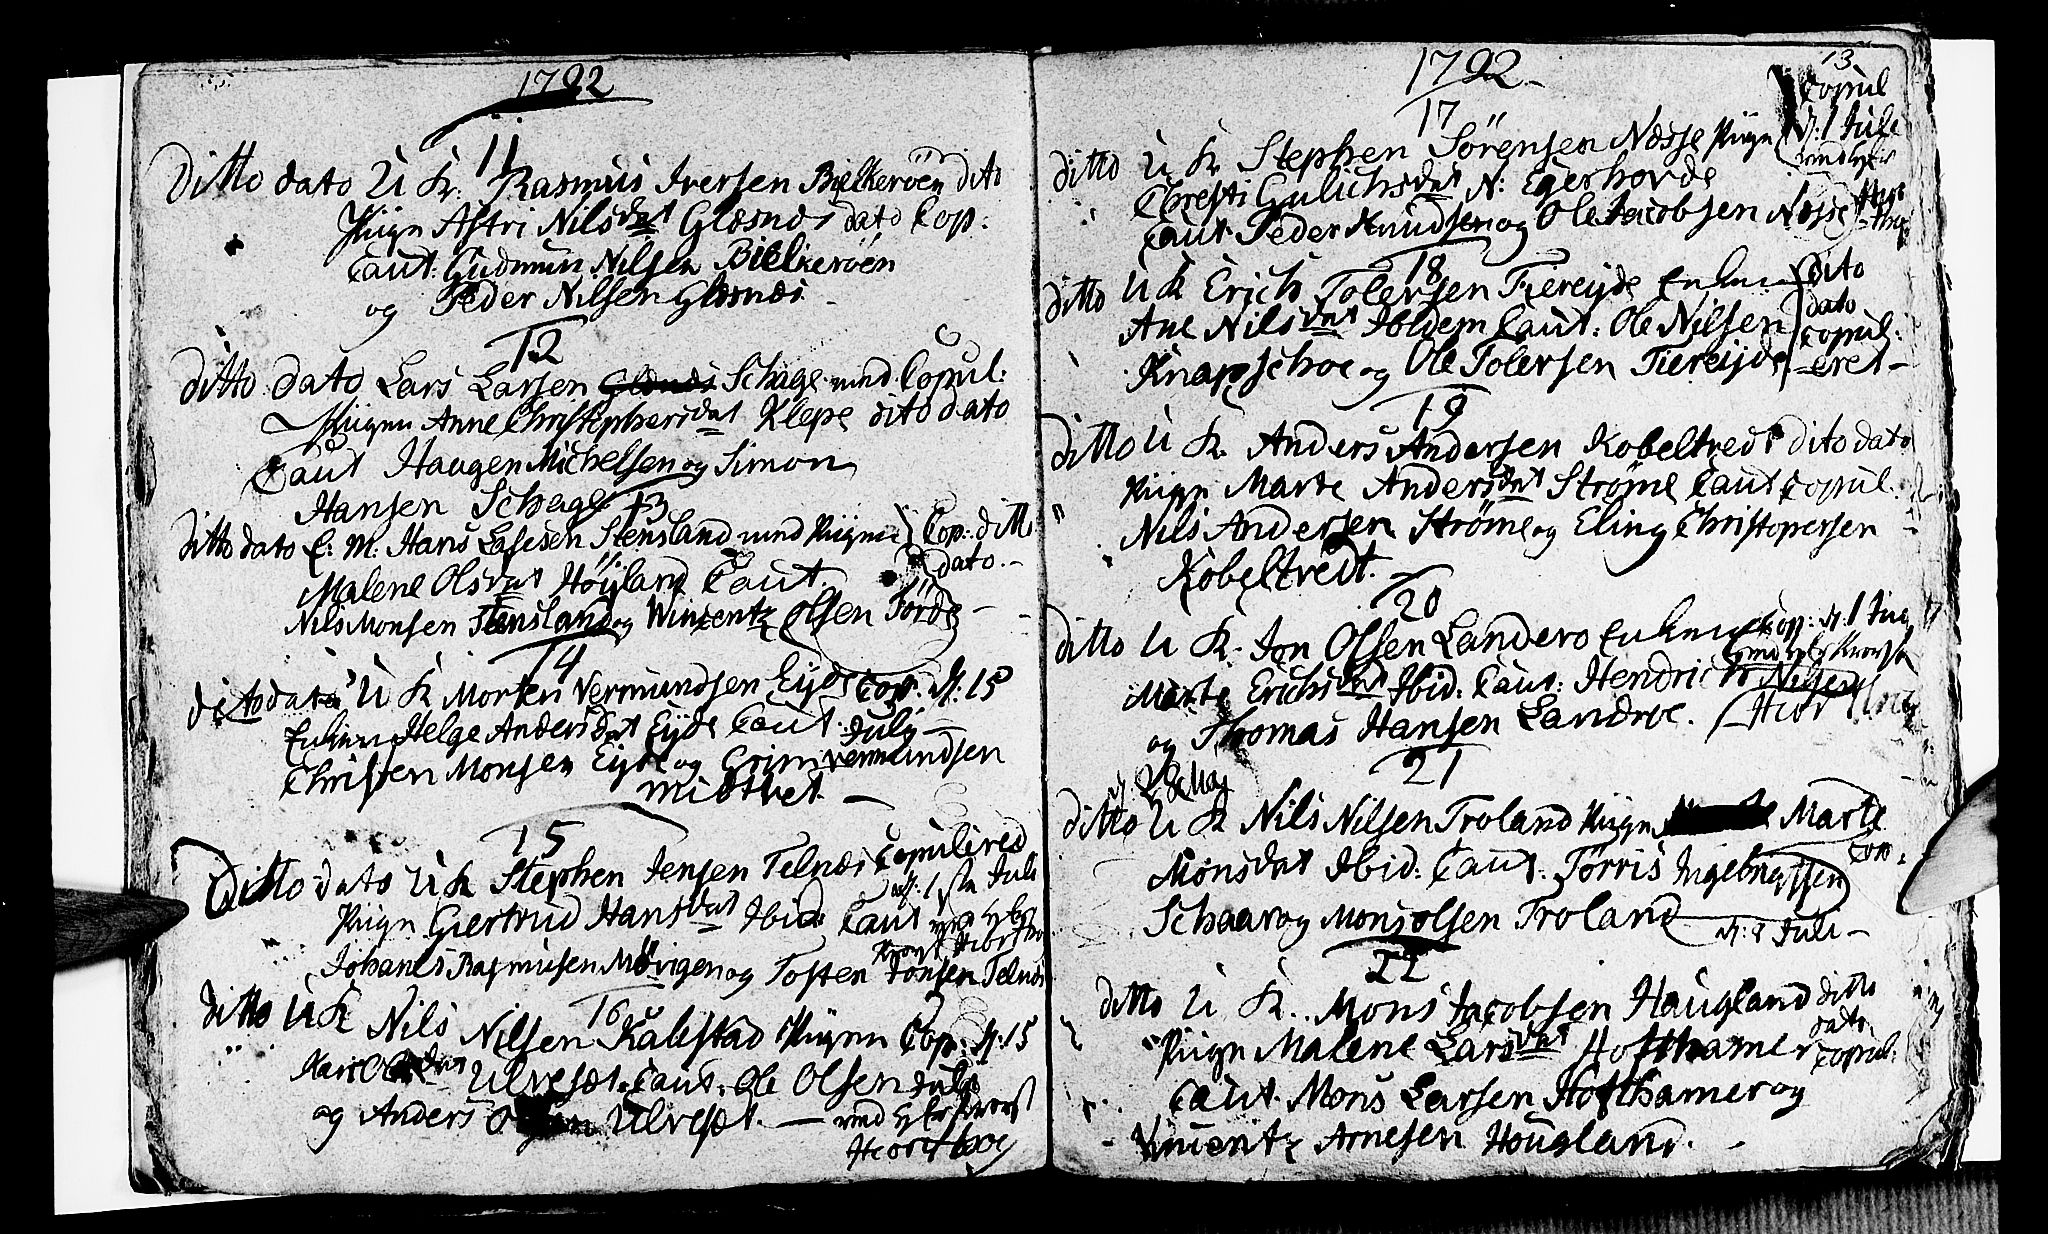 1792
11
Ditto dato U K: Rasmus Iversen Bielkerøen dito
Piign Astri Nilsdat Glesnes dato Cop:
Caut: Gudmun Nilsen Bielkerøen
og Peder Nilsen Glesnes
12
ditto dato Lars Larsen Schage med Copul:
Piigen Anne Christophersdat Klepe dito dato
Caut Haagen Michelsen og Simon
Hansen Schage
13
ditto dato E: M: Hans Lassesen Stensland med Piigen Cop: ditto
Malene Olsdat Høyland Caut. dato.-
Nils Monsen Stensland og Winzentz Olsen Førde -
14
ditto dato U K Morten Vermundsen Eyde Cop. d: 15
Enken Helge Andersdat Eyde Caut. July -
Christen Monsen Eyde og Grim Vermundsen
Midtvet. -
15
Ditto dato U K Stephen Jensen Telnes Copulered
Piign Giertrud Hansdat Ibid: Caut d: 1ste Juli
Johanes Rasmusen Møvigen og Tosten Jonsen Telnes
16
ditto U K Nils Nilsen Kallestad Piigen Cop: d: 15
Kari Olsdat Ulveset. Caut. Ole Olsen July
og Anders Olsen Ulveset. - med
1792
13
17
Copul
ditto U K Stephen Sörensen Nesse Piign d: 1 Jule
Christi Gulichsdat N: Egerhovde
Caut. Peder Knudsen og Ole Jacobsen Nesse
18
ditto U K Erich Tolersen Tiereyde Enken dito
Ane Nilsdat Ibidem Caut: Ole Nilsen dato
Knapschoe og Ole Tolersen Tiereyde Copul:
eret -
19
ditto U K. Anders Andersen Kobeltvedt dito dato
Piign Marte Andersdat Strøme Caut Copul.
Nils Andersen Strøme og Eling Christopersen
Kobeltvedt. -
20
ditto U K. Jon Olsen Landero Enken Cop: d: 1 July
Marte Erichsdat Ibid: Caut: Hendrich Nilsen
og Thomas Hansen Landroe.
21
d: 28 May
ditto U K Nils Nilsen Troland Piign Marte
Monsdat Ibid: Caut: Tørris Ingebrigtsen Cop:
Schaar og Mons Olsen Troland d: 8 Juli -
22
ditto U K. Mons Jacobsen Haugland ditto
Piign Malene Larsdat Hofthamer dato
Caut. Mons Larsen Hofthamer og Copul:
Vincentz Arnesen Hougland. -